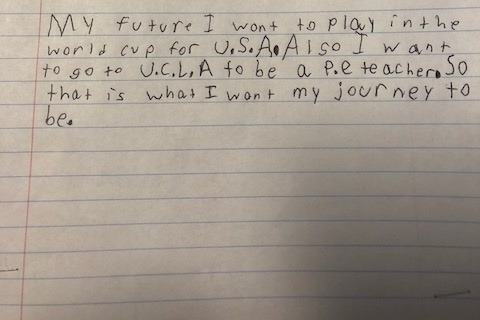 My future I wont to play in the
world cup for U.S.A. Also I want
to go to U.C.L.A to be a P.e teacher. So
that is what I want my journey to
be.